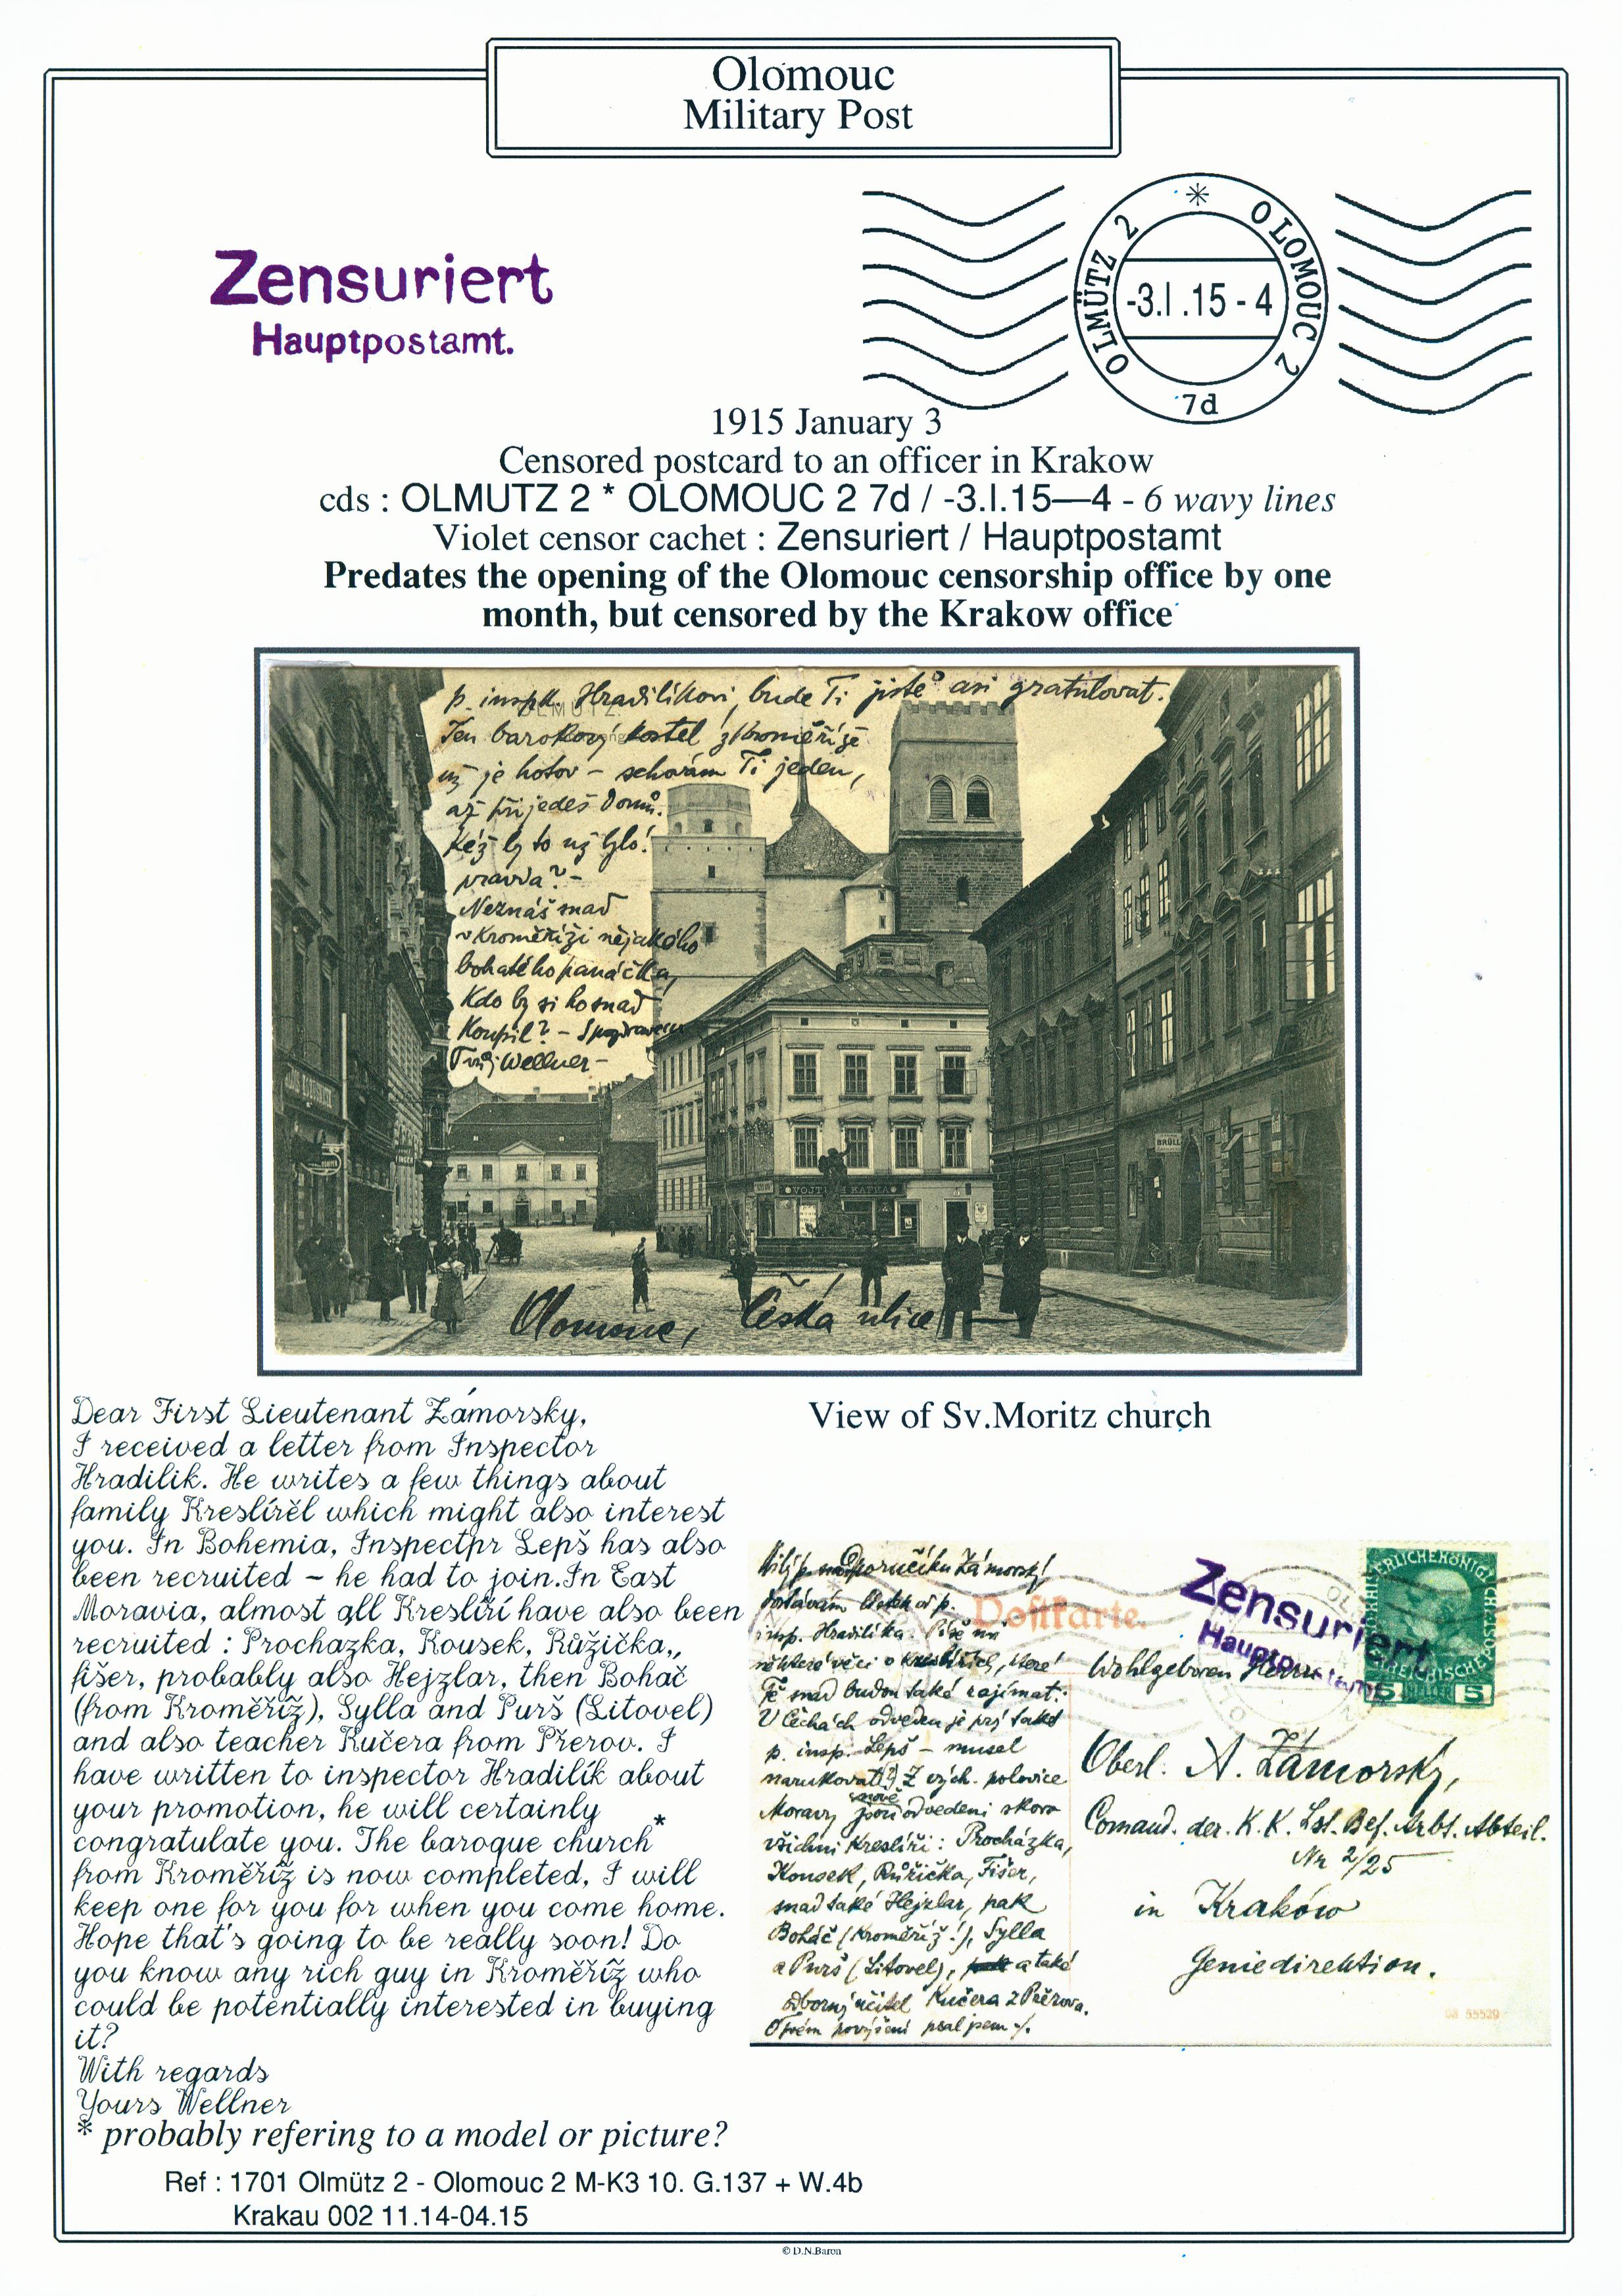 Olomouc
Military Post
Zensuriert
Hauptpostamt.
OLMÜTZ 2 * OLOMOUC 2
-3.I.15-4
7d
1915 January 3
Censored postcard to an officer in Krakow
cds : OLMUTZ 2 * OLOMOUC 2 7d / -3.I.15—4 - 6 wavy lines
Violet censor cachet : Zensuriert / Hauptpostamt
Predates the opening of the Olomouc censorship office by one
month, but censored by the Krakow office
p. inspkt. Hradilíkovi, bude Ti jistě asi gratulovat.
OLMÜTZ
Ten barokový kostel z Kroměříže
už je hotov – schovám Ti jeden,
až přijedeš domů.
Kéž by to už bylo!
pravda? –
Neznáš snad
v Kroměříži nějakého
bohatého panáčka,
Kdo by si ho snad
Koupil? – S pozdravem
Tvůj Wellner –
BRÜLL
VOJTĚCH KAFKA
Olomouc, Česká ulice
View of Sv.Moritz church
Dear First Lieutenant Zámorsky,
I received a letter from Inspector
Hradilik. He writes a few things about
family Kreslírěl which might also interest
you. In Bohemia, Inspectpr Lepš has also
been recruited ~ he had to join.In East
Moravia, almost all Kreslírí have also been
recruited : Prochazka, Kousek, Růžička,,
fišer, probably also Hejzlar, then Bohač
(from Kroměříž), Sylla and Purš (Litovel)
and also teacher Kučera from Přerov. I
have written to inspector Hradilík about
your promotion, he will certainly
congratulate you. The baroque church*
from Kroměříž is now completed, I will
keep one for you for when you come home.
Hope that's going to be really soon! Do
you know any rich guy in Kroměříž who
could be potentially interested in buying
it?
With regards
Yours Wellner
* probably refering to a model or picture?
Milý p. nadporučíku Zámorský!
dostávám lístek od p.
insp. Hradilíka. Píše mi
některé věci o kreslířích, které
Tě snad budou také zajímat:
V Čechách odveden je prý také
p. insp. Lepš – musel
narukovat(?) Z vých. polovice
Moravy jsou nově odvedeni skoro
všichni Kreslíři: Procházka,
Kousek, Růžička, Fišer,
snad také Hejzlar, pak
Boháč (Kroměříž!), Sylla
a Purš (Litovel), a také
odborný učitel Kučera z Přerova.
O Tvém povýšení psal jsem ./.
Postkarte.
Zensuriert
Hauptpostamt.
5 HELLER 5
Wohlgeboren Herrn
Oberl. A. Zámorský,
Comand. der. K. K. Lst. Bef. Arbt. Abteil.
Nr 2/25
in Kraków
Geniedirektion.
55529
Ref : 1701 Olmütz 2 - Olomouc 2 M-K3 10. G.137 + W.4b
Krakau 002 11.14-04.15
© D.N.Baron